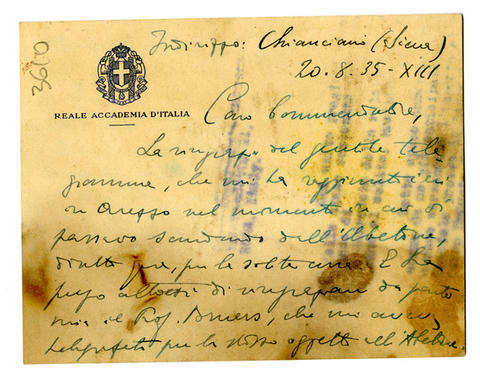 3610
Indirizzo: Chianciano (Siena)
20.8.35-XIII
REALE ACCADEMIA D'ITALIA
Caro Commendatore,
La ringrazio del gentile tele-
gramma, che mi ha
in Arezzo nel momento in cui vi
passavo scendendo dall'Abetone,
diretto qui, per la solita cura. E La
prego di ringraziare da parte
mia il Prof. Bruers, che mi aveva
telegrafato per lo stesso oggetto all'Abetone.